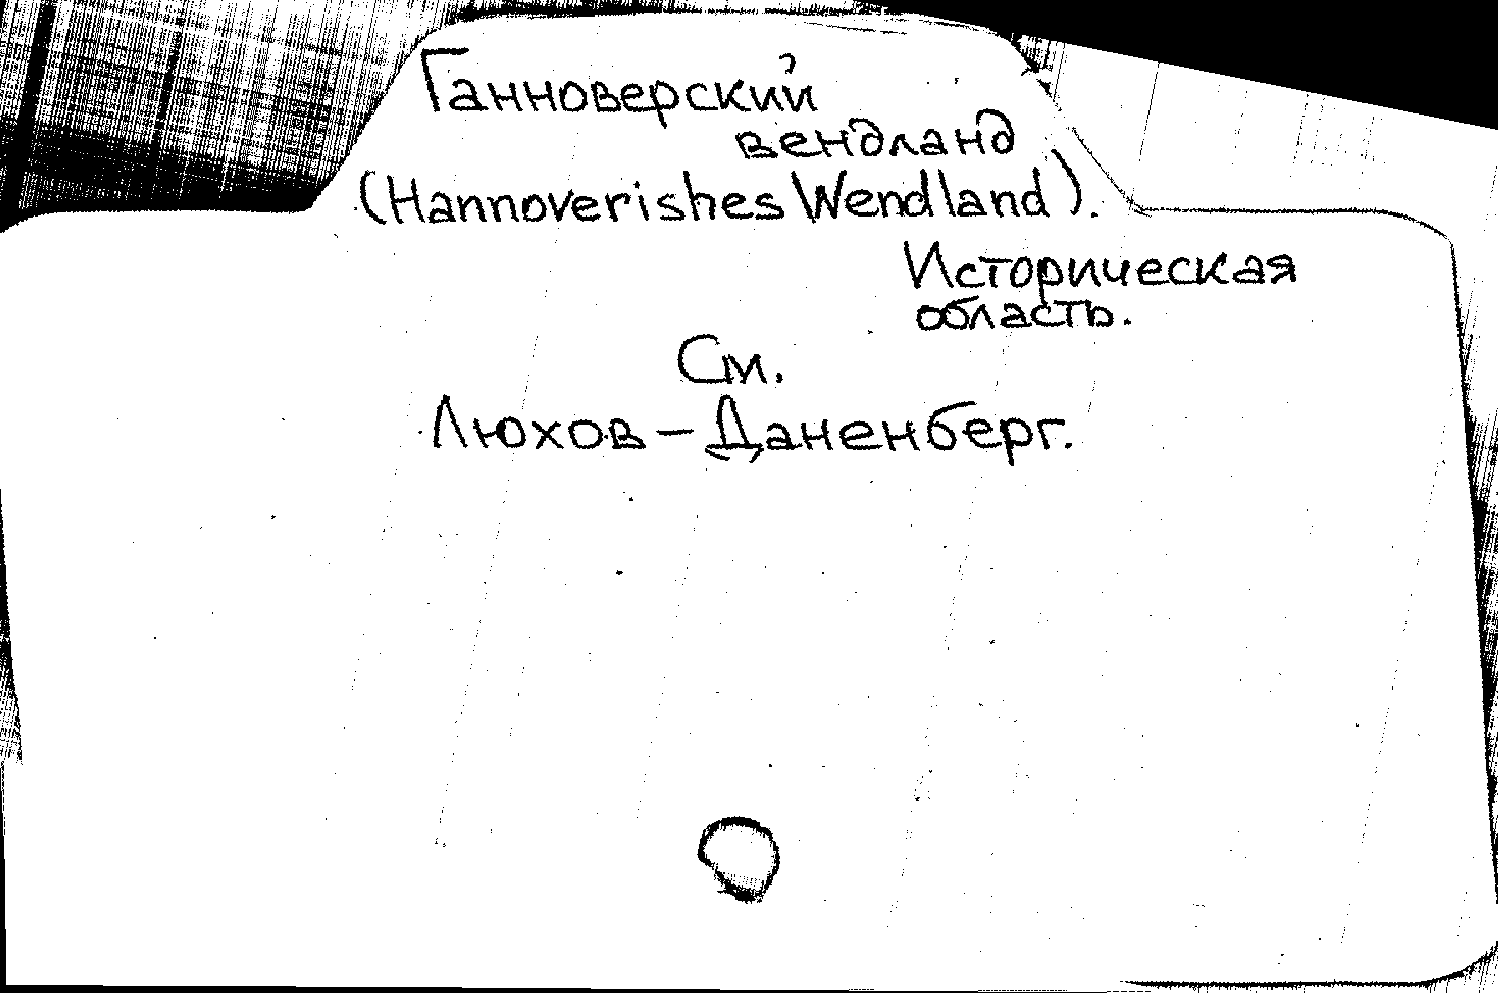 Ганноверский
вендланд
(Hannoverishes Wendland).
Историческая
область.
См.
Люхов – Даненберг.